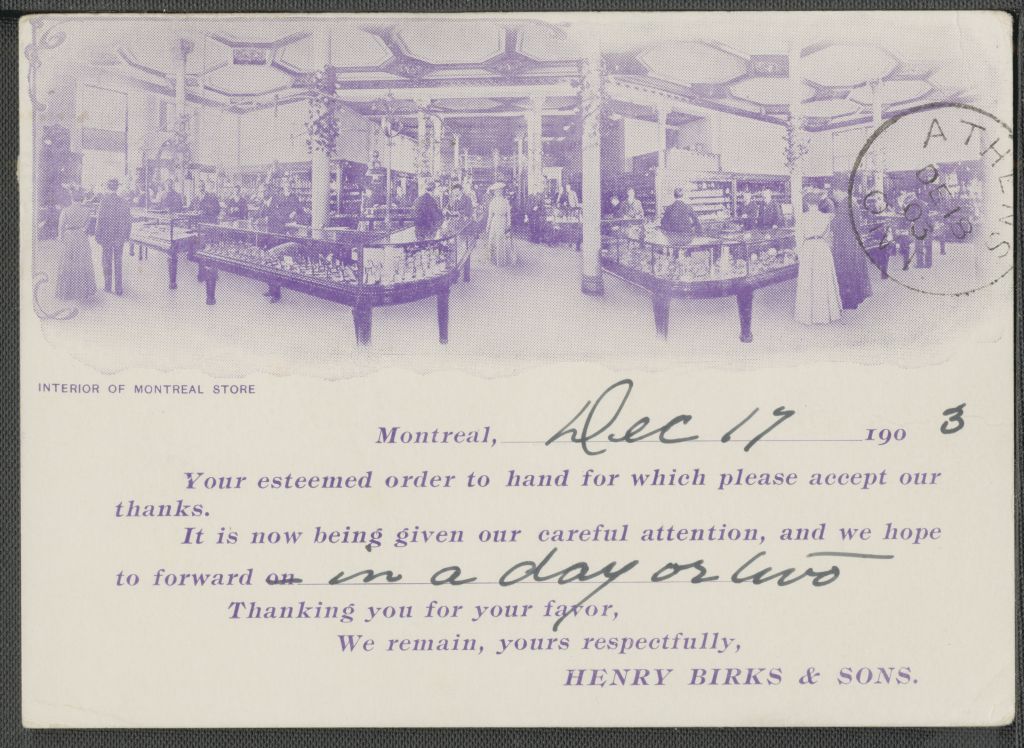 ATHENS
DE 18
03
ONT
INTERIOR OF MONTREAL STORE
Montreal, Dec 17 1903
Your esteemed order to hand for which please accept our
thanks.
It is now being given our careful attention, and we hope
to forward on in a day or two
Thanking you for your favor,
We remain, yours respectfully,
HENRY BIRKS & SONS.